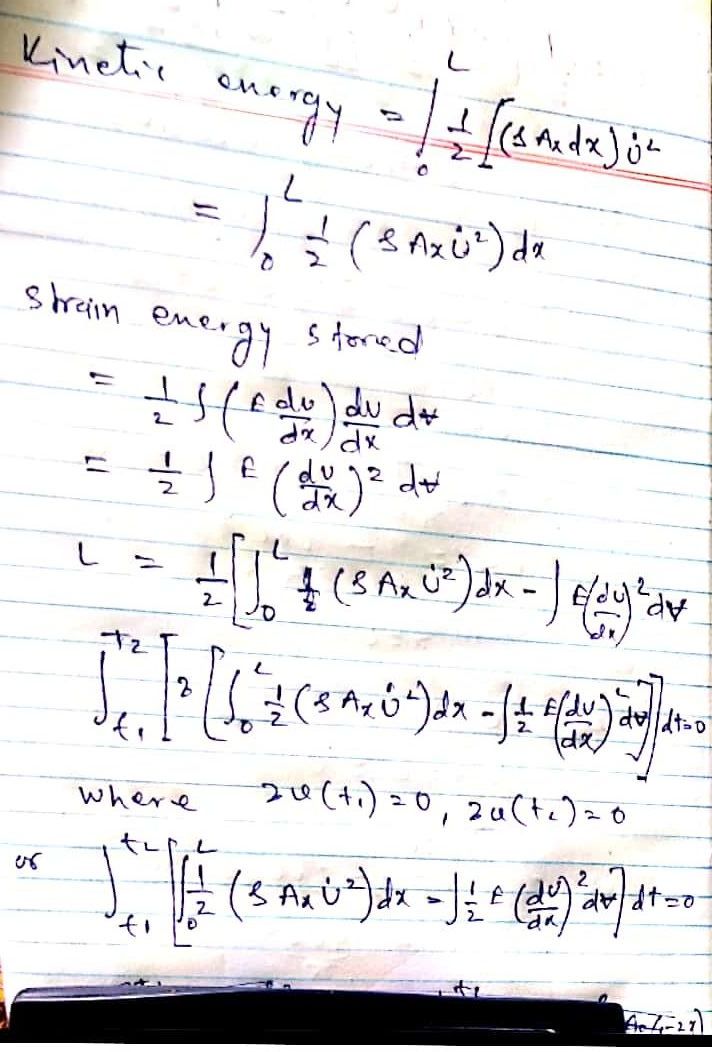 Kinetic energy = ∫₀ᴸ ½ [(ρ Aₓ dx) u̇²
= ∫₀ᴸ ½ (ρ Aₓ u̇²) dx
Strain energy stored
= ½ ∫ (E du/dx) du/dx dV
= ½ ∫ E (du/dx)² dV
L = ½ [∫₀ᴸ ½ (ρ Aₓ u̇²) dx - ∫ E (du/dx)² dV
∫_{t₁}^{t₂} [∂ [∫₀ᴸ ½ (ρ Aₓ u̇²) dx - ∫ ½ E (du/dx)² dV]] dt = 0
where ∂u(t₁) = 0, ∂u(t₂) = 0
or ∫_{t₁}^{t₂} [∫₀ᴸ ½ (ρ Aₓ u̇²) dx - ∫ ½ E (du/dx)² dV] dt = 0